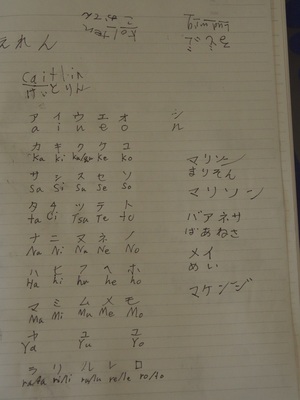 えれん
caitlin
けいとりん
ア イ ウ エ オ
a i u e o
シ
ル
カ キ ク ケ コ
ka ki ku ke ko
マリソン
まりそん
サ シ ス セ ソ
sa si su se so
マリソーン
タ チ ツ テ ト
ta Ci Tsu Te to
バアネサ
ばあねさ
ナ ニ ヌ ネ ノ
Na Ni Nu Ne No
メイ
めい
ハ ヒ フ ヘ ホ
Ha hi hu he ho
マケンジ
マ ミ ム メ モ
Ma Mi Mu Me Mo
ヤ ユ ヨ
Ya Yu Yo
ラ リ ル レ ロ
ra/la ri/li ro/lu re/le ro/lo